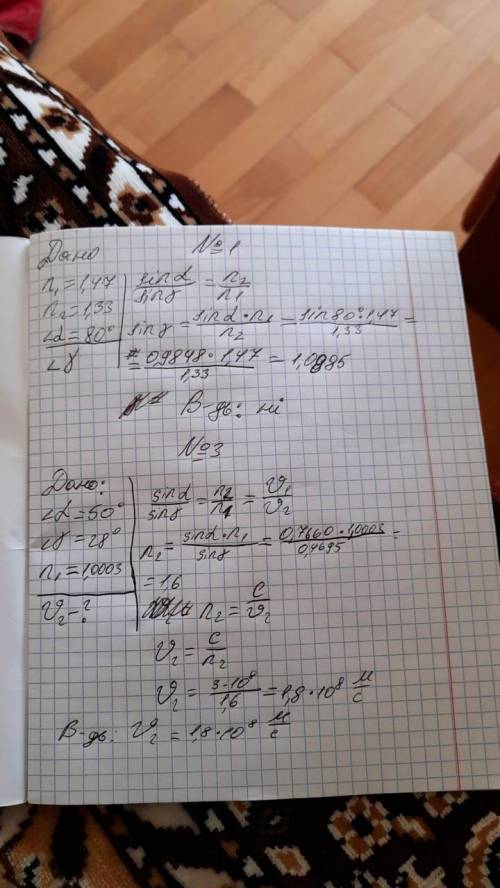 №1
Дано
n₁ = 1,47
n₂ = 1,33
∠α = 80°
∠γ
sinα/sinγ = n₂/n₁
sinγ = sinα·n₁/n₂ = sin80°·1,47/1,33 =
= 0,9848·1,47/1,33 = 1,0885
В-дь: ні
№3
Дано:
∠α = 50°
∠γ = 28°
n₁ = 1,0003
υ₂ - ?
sinα/sinγ = n₂/n₁ = υ₁/υ₂
n₂ = sinα·n₁/sinγ = 0,7660·1,0003/0,4695 =
= 1,6
n₂ = c/υ₂
υ₂ = c/n₂
υ₂ = 3·10⁸/1,6 = 1,8·10⁸ м/с
В-дь: υ₂ = 1,8·10⁸ м/с